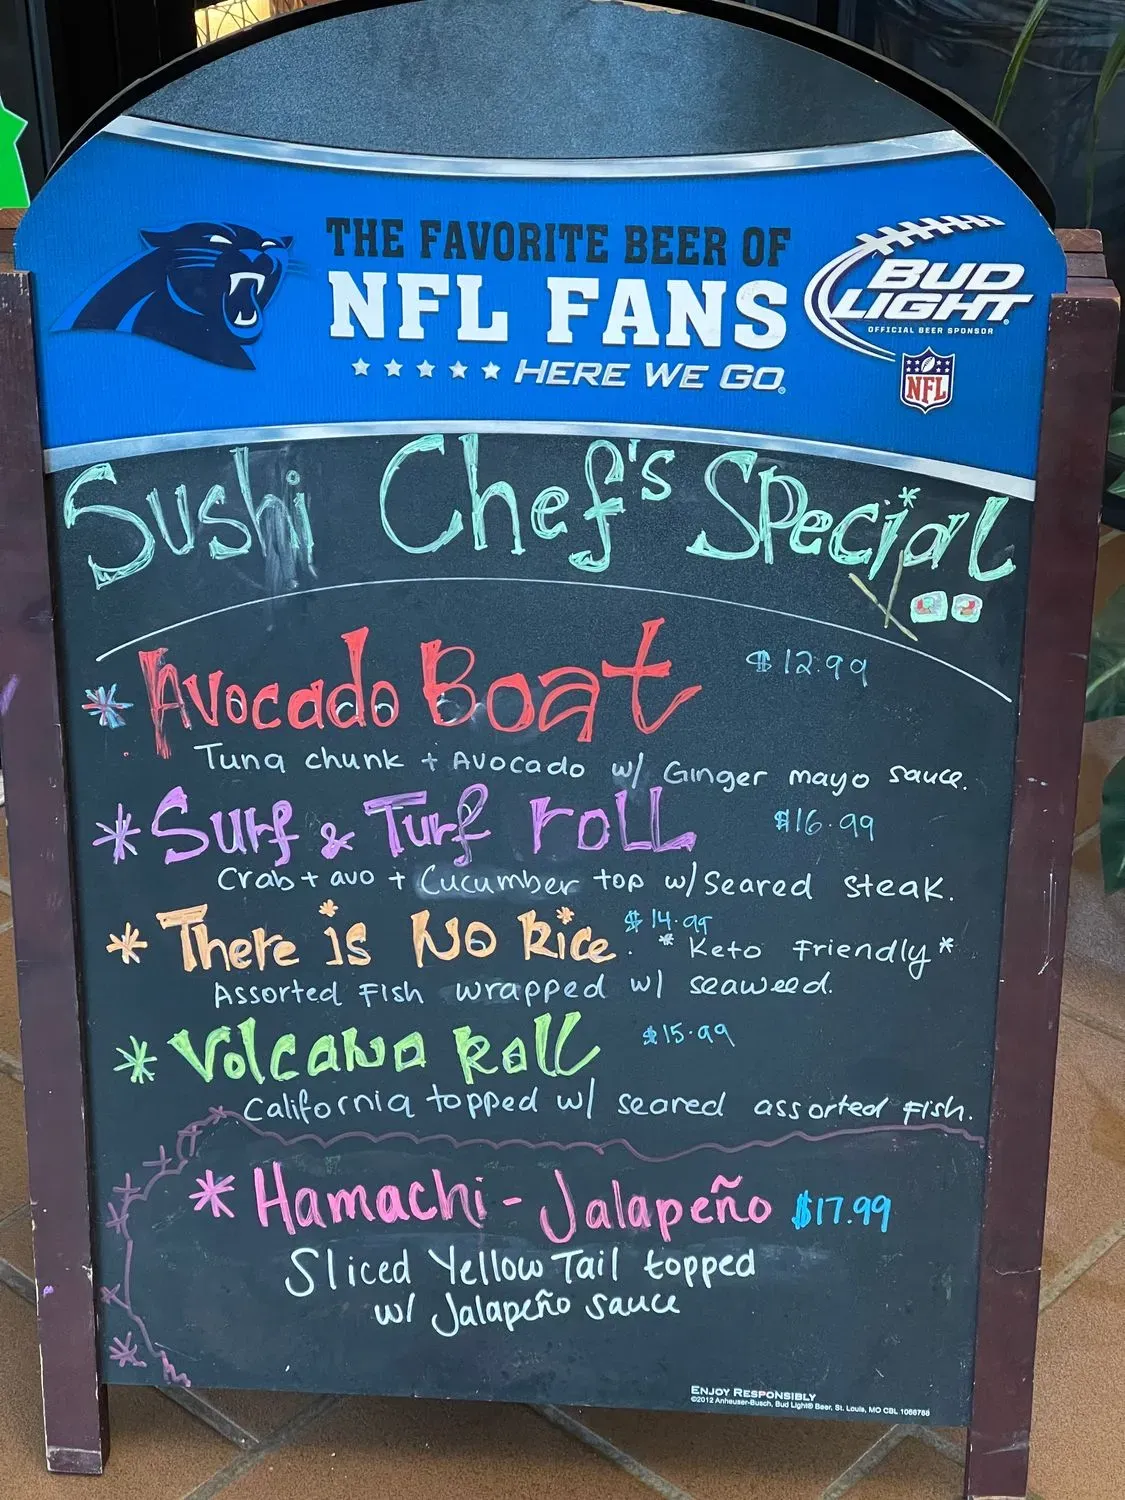 THE FAVORITE BEER OF
NFL FANS
HERE WE GO®
BUD
LIGHT®
OFFICIAL BEER SPONSOR
NFL
Sushi Chef's Special
* Avocado Boat $12.99
Tuna chunk + Avocado w/ Ginger mayo sauce.
* Surf & Turf roll $16.99
Crab + avo + Cucumber top w/ Seared steak.
* There is No Rice. $14.99 * Keto Friendly *
Assorted Fish wrapped w/ seaweed.
* Volcano Roll $15.99
California topped w/ seared assorted Fish.
* Hamachi - Jalapeño $17.99
Sliced Yellow Tail topped
w/ Jalapeño sauce
ENJOY RESPONSIBLY
©2012 Anheuser-Busch, Bud Light® Beer, St. Louis, MO CBL 1066768